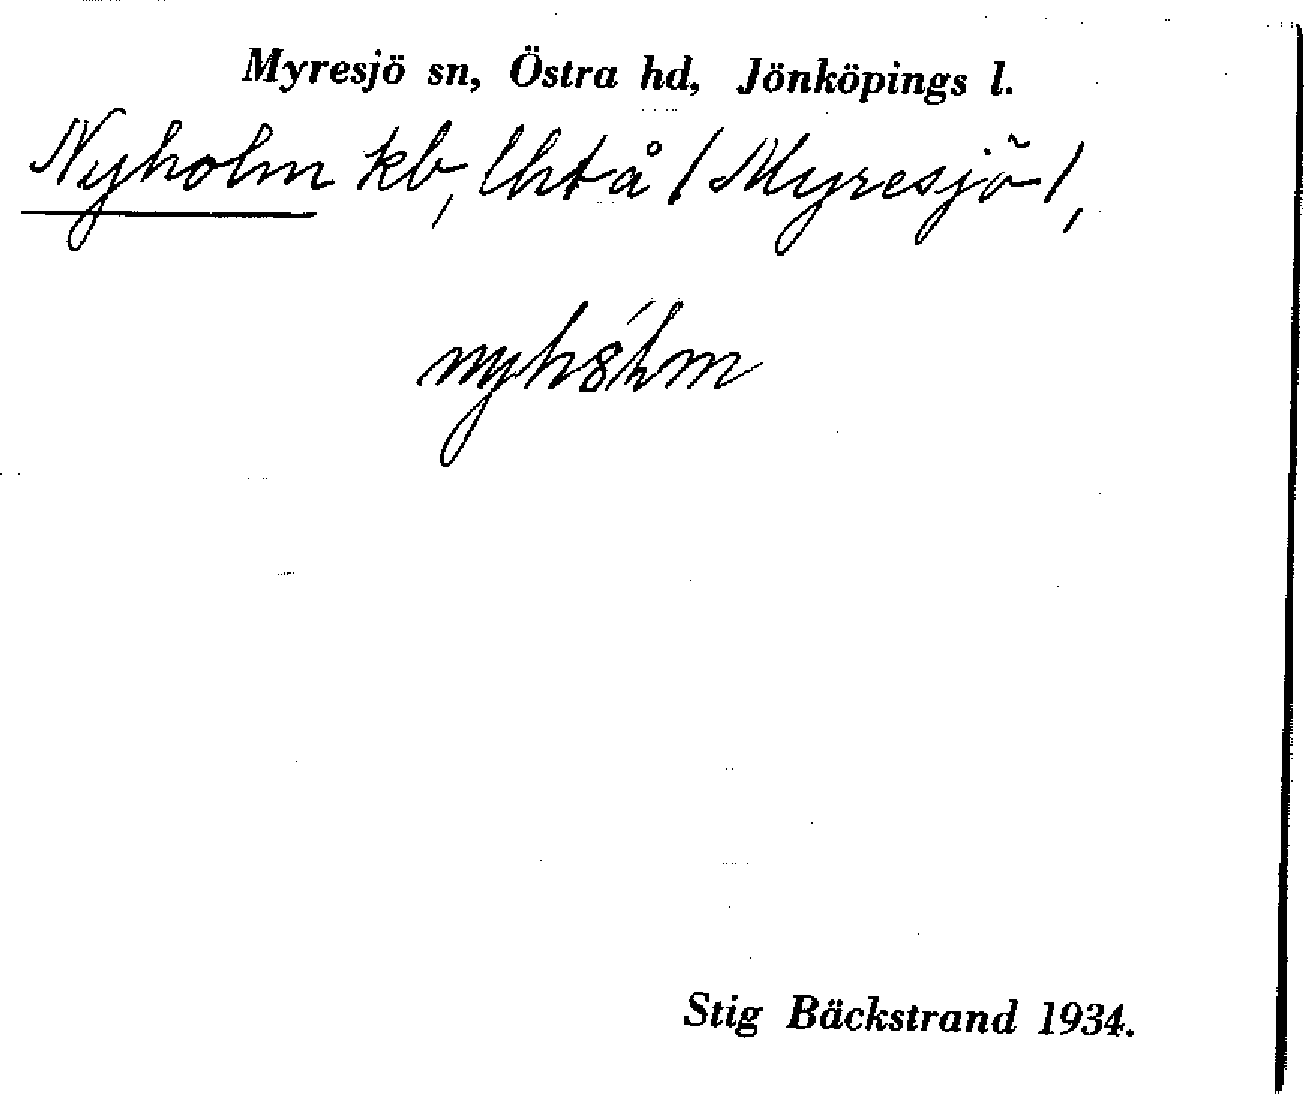 Myresjö sn, Östra hd, Jönköpings l.
Nyholm kb, lht å / Myresjö /,
Stig Bäckstrand 1934.